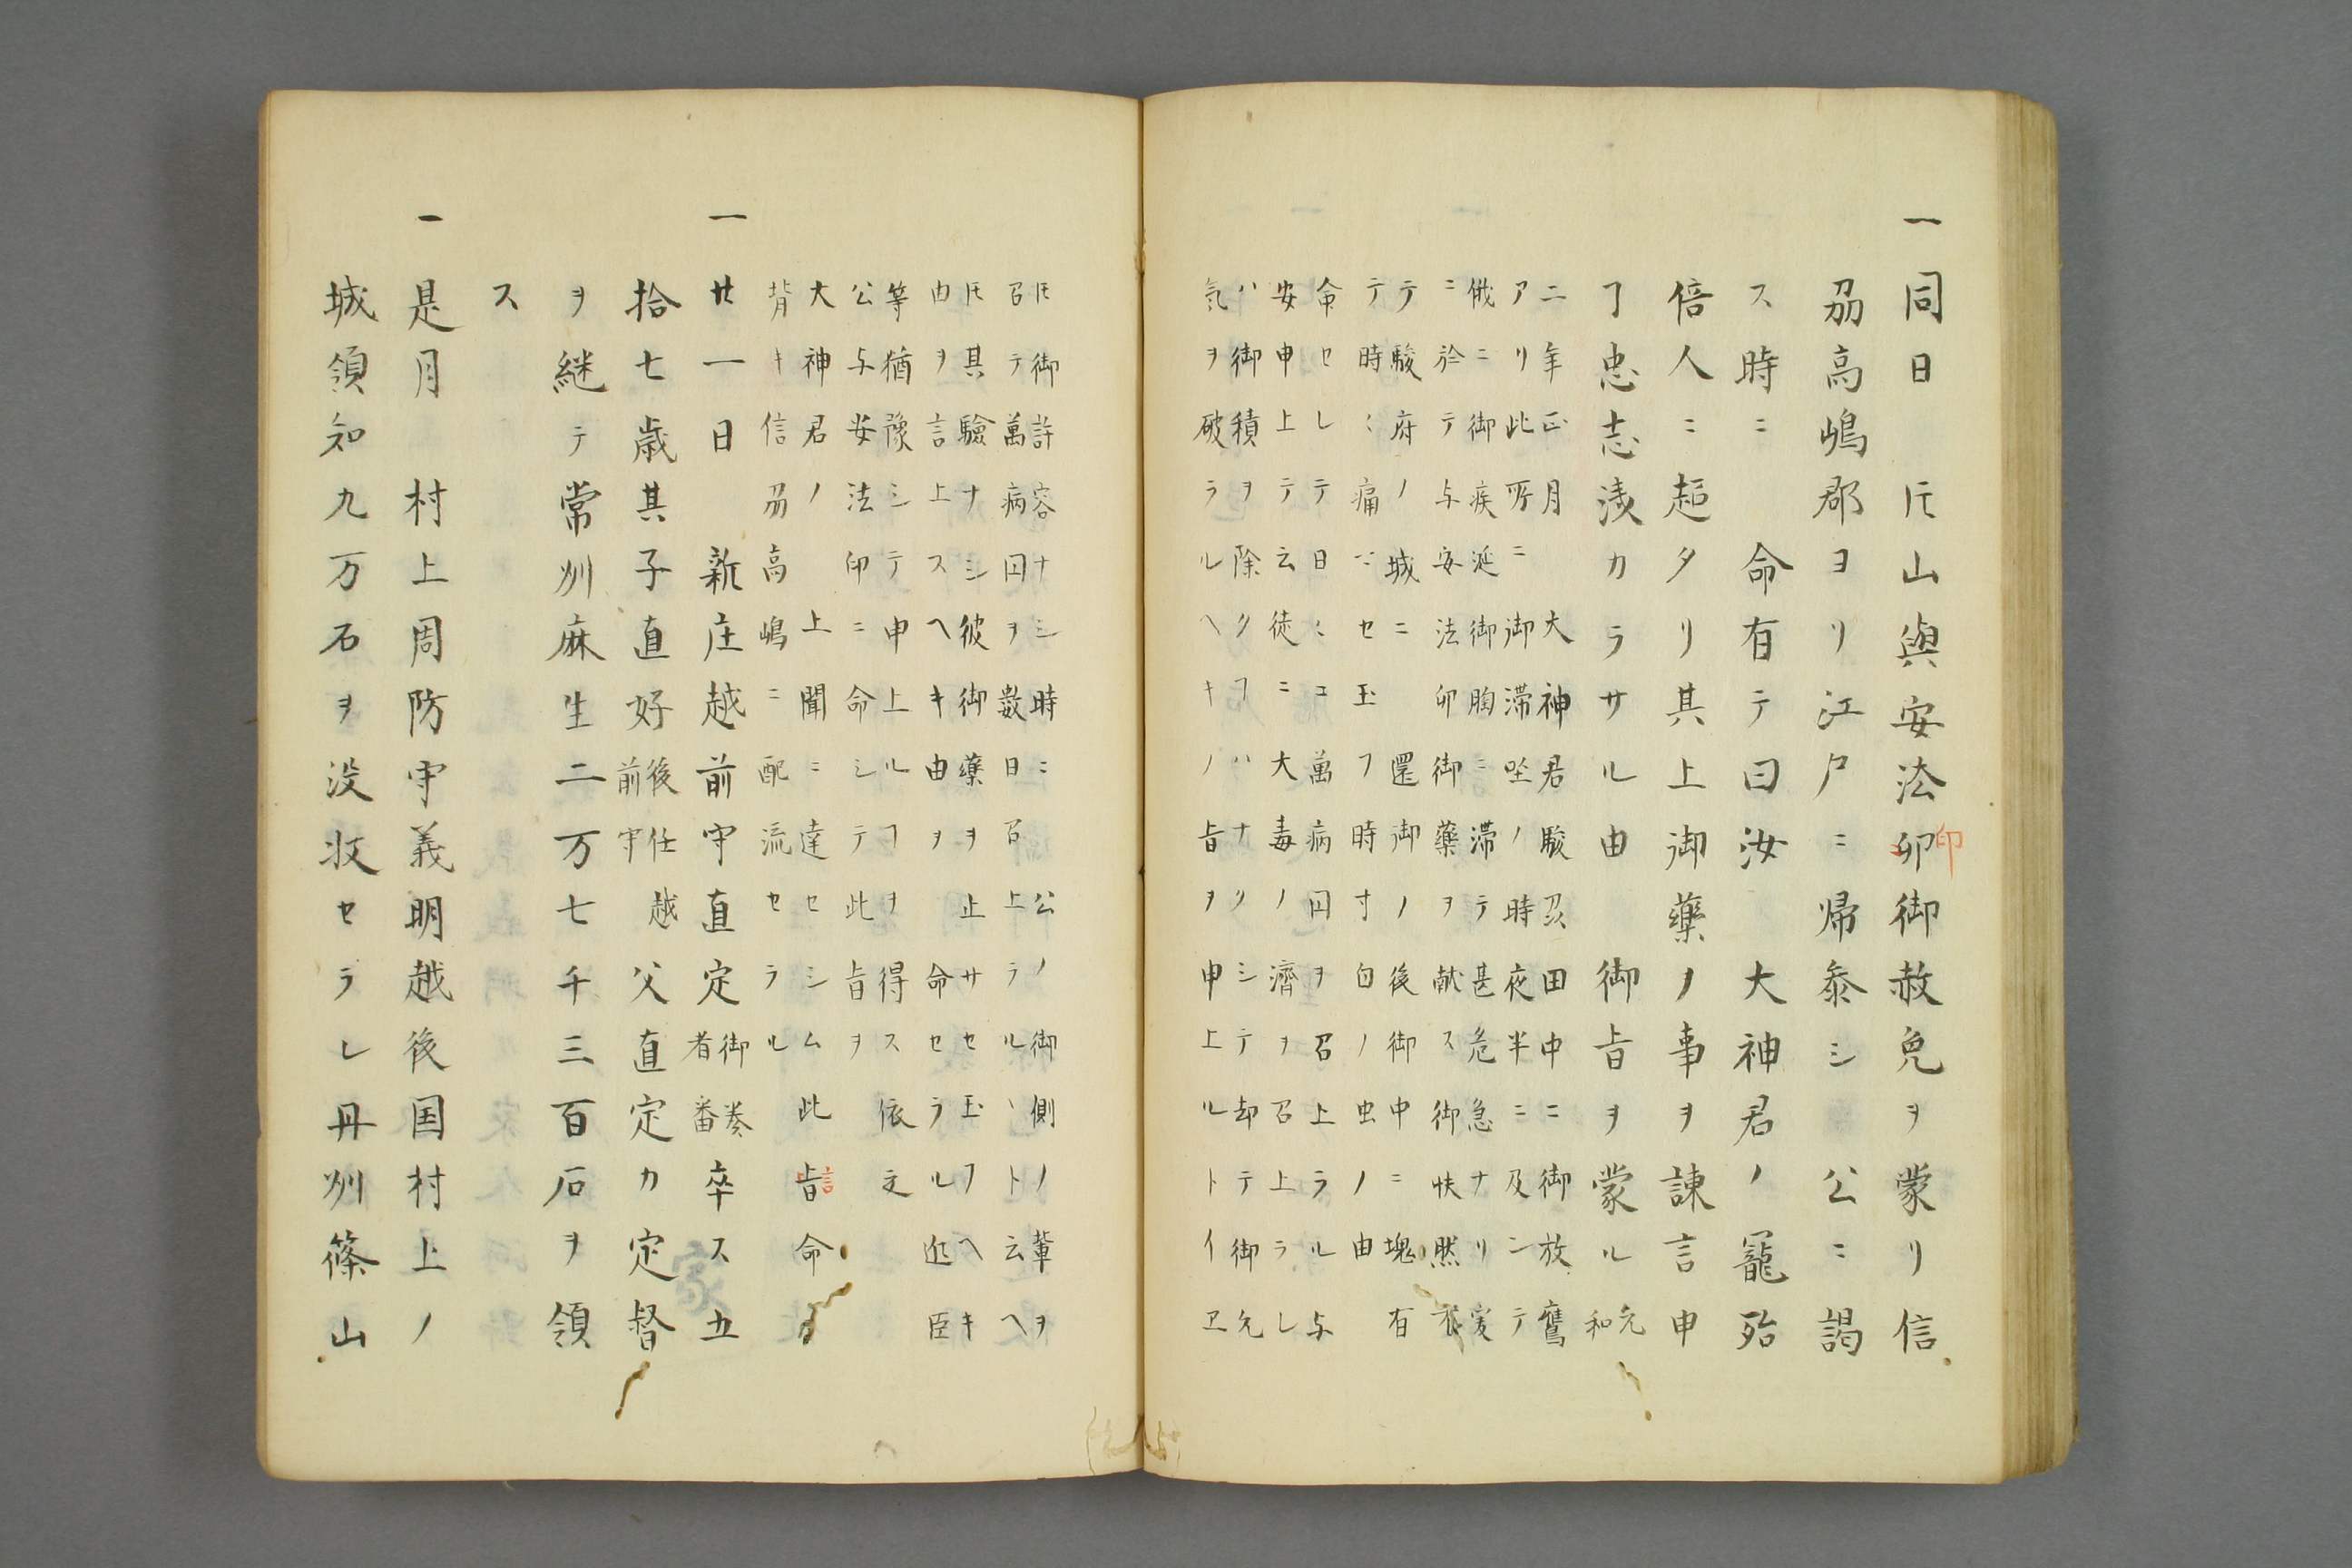 一同日 片山與安法卯御赦免ヲ蒙リ信
印
刕高嶋郡ヨリ江戸ニ帰参シ 公ニ謁
ス時ニ 命有テ曰汝 大神君ノ寵殆
倍人ニ超タリ其上御藥ノ事ヲ諫言申
ヿ忠志淺カラサル由 御旨ヲ蒙ル元
和
二年正月 大神君駿刕田中ニ御放鷹
アリ此所ニ 御滞坐ノ時夜半ニ及シテ
俄ニ御疾涎御胸ニ滞テ甚危急ナリ爰
ニ於テ与安法卯御藥ヲ献ス御快然
テ駿府ノ城ニ 還御ノ後御中ニ塊有
テ時〻痛マセ玉フ時寸白ノ虫ノ由
命セレテ日〻ニ萬病円ヲ召上ラル与
安申上テ云徒ニ大毒ノ濟ヲ召上ラレ
ハ御積ヲ除クヿハナクシテ却テ御元
気ヲ破ラルヘキノ旨ヲ申上ルトイヱ
𪜈御許容ナシ時ニ 公ノ御側ノ輩ヲ
召テ萬病円ヲ数日召上ラルヽト云ヘ
𪜈其驗ナシ彼御藥ヲ止サセ玉フヘキ
由ヲ言上スヘキ由ヲ 命セラル近臣
等猶豫シテ申上ルヿヲ得ス依之
公与安法印ニ命シテ此旨ヲ
大神君ノ 上聞ニ達セシム此旨命
言
背キ信刕高嶋ニ配流セラル
一廿一日 新庄越前守直定御奏
者番卒ス五
拾七歳其子直好後任越
前守父直定カ定督
ヲ継テ常州麻生二万七千三百石ヲ領
ス
一是月 村上周防守義明越後国村上ノ
城領知九万石ヲ没收セラレ丹州篠山